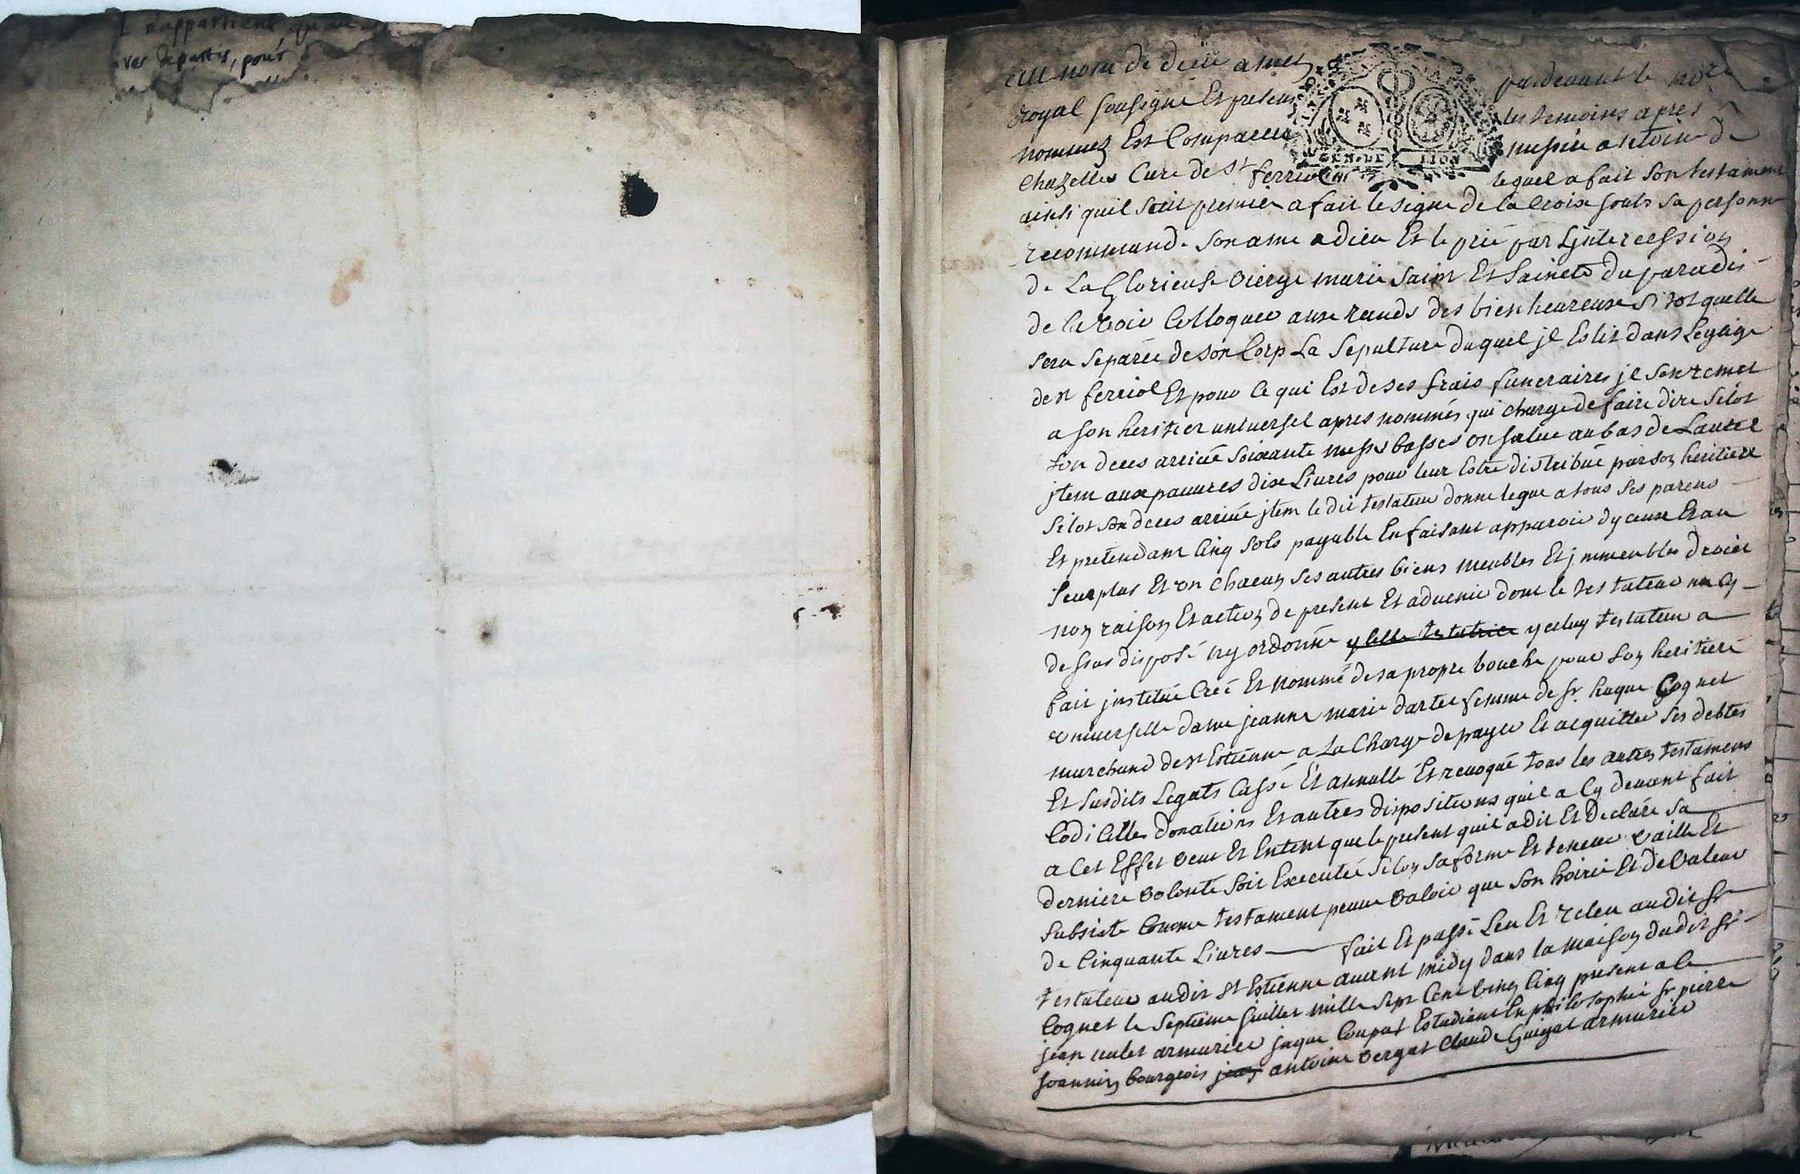 n'appartient
ver departis, pour
au nom de dieu amen pardevant le no.re
Royal soussigné Et presens les temoins apres
nommez Est Comparu messire antoine de
Chazelles Curé de St ferriol lequel a fait son testament
ainsi quil suit premier a fait le signe de la Croix sur sa personne
recommandé son ame a dieu Et le prié par L'jntercession
de La Glorieuse vierge marie saint Et sainets du paradis
de la voir Colloquer aux rands des bienheureux si tot quelle
sera separée de son Corp La sepulture duquel jl Eslit dans Leglise
de st ferriol Et pour Ce qui Est de ses frais funeraires jl sen remet
a son heritier universel apres nommés qui charge de faire dire sitot
son deces arrivé soixante messes basses au bas de Lautel
jtem aux pauvres dix Livres pour leur Estre distribué par son heritiere
sitot son deces arrivé jtem le dit testateur donne legue a tous ses parens
Et pretendant Cinq sols payable En faisant apparoir dyceux Et au
surplus Et En Chacun ses autres biens meubles Et jmmeubles droits
nom raison Et action de present Et advenir dont le testateur na cy
dessus disposé ny ordonné ycelle testatrice yceluy testateur a
fait jnstitué Creé Et nommé de sa propre bouche pour son heritiere
universelle dame jeanne marie dartee femme de sr huque Cognet
marchand de st Estienne a La Charge de payer Et acquitter ses debtes
Et susdits Legats Cassé Et annullé Et revoqué tous les autres testamens
Codicilles donations Et autres dispositions quil a Cy devant fait
a Cet Effet veut Et Entent que le present quil a dit Et declaré sa
derniere volonté soit Executée selon sa forme Et teneur vaille Et
subsiste Comme testament peut valoir que son hoirie Et de valeur
de Cinquante Livres fait Et passé Leu Et releu audit sr
testateur audit st Estienne avant midy dans la maison dudit sr
Cognet le septieme juillet mille sept Cent vingt Cinq present a Ce
jean armurier jaque Coupat Estudiant En philosophie sr pierre
joannin bourgeois jean antoine vergat Claude Guigal armurier